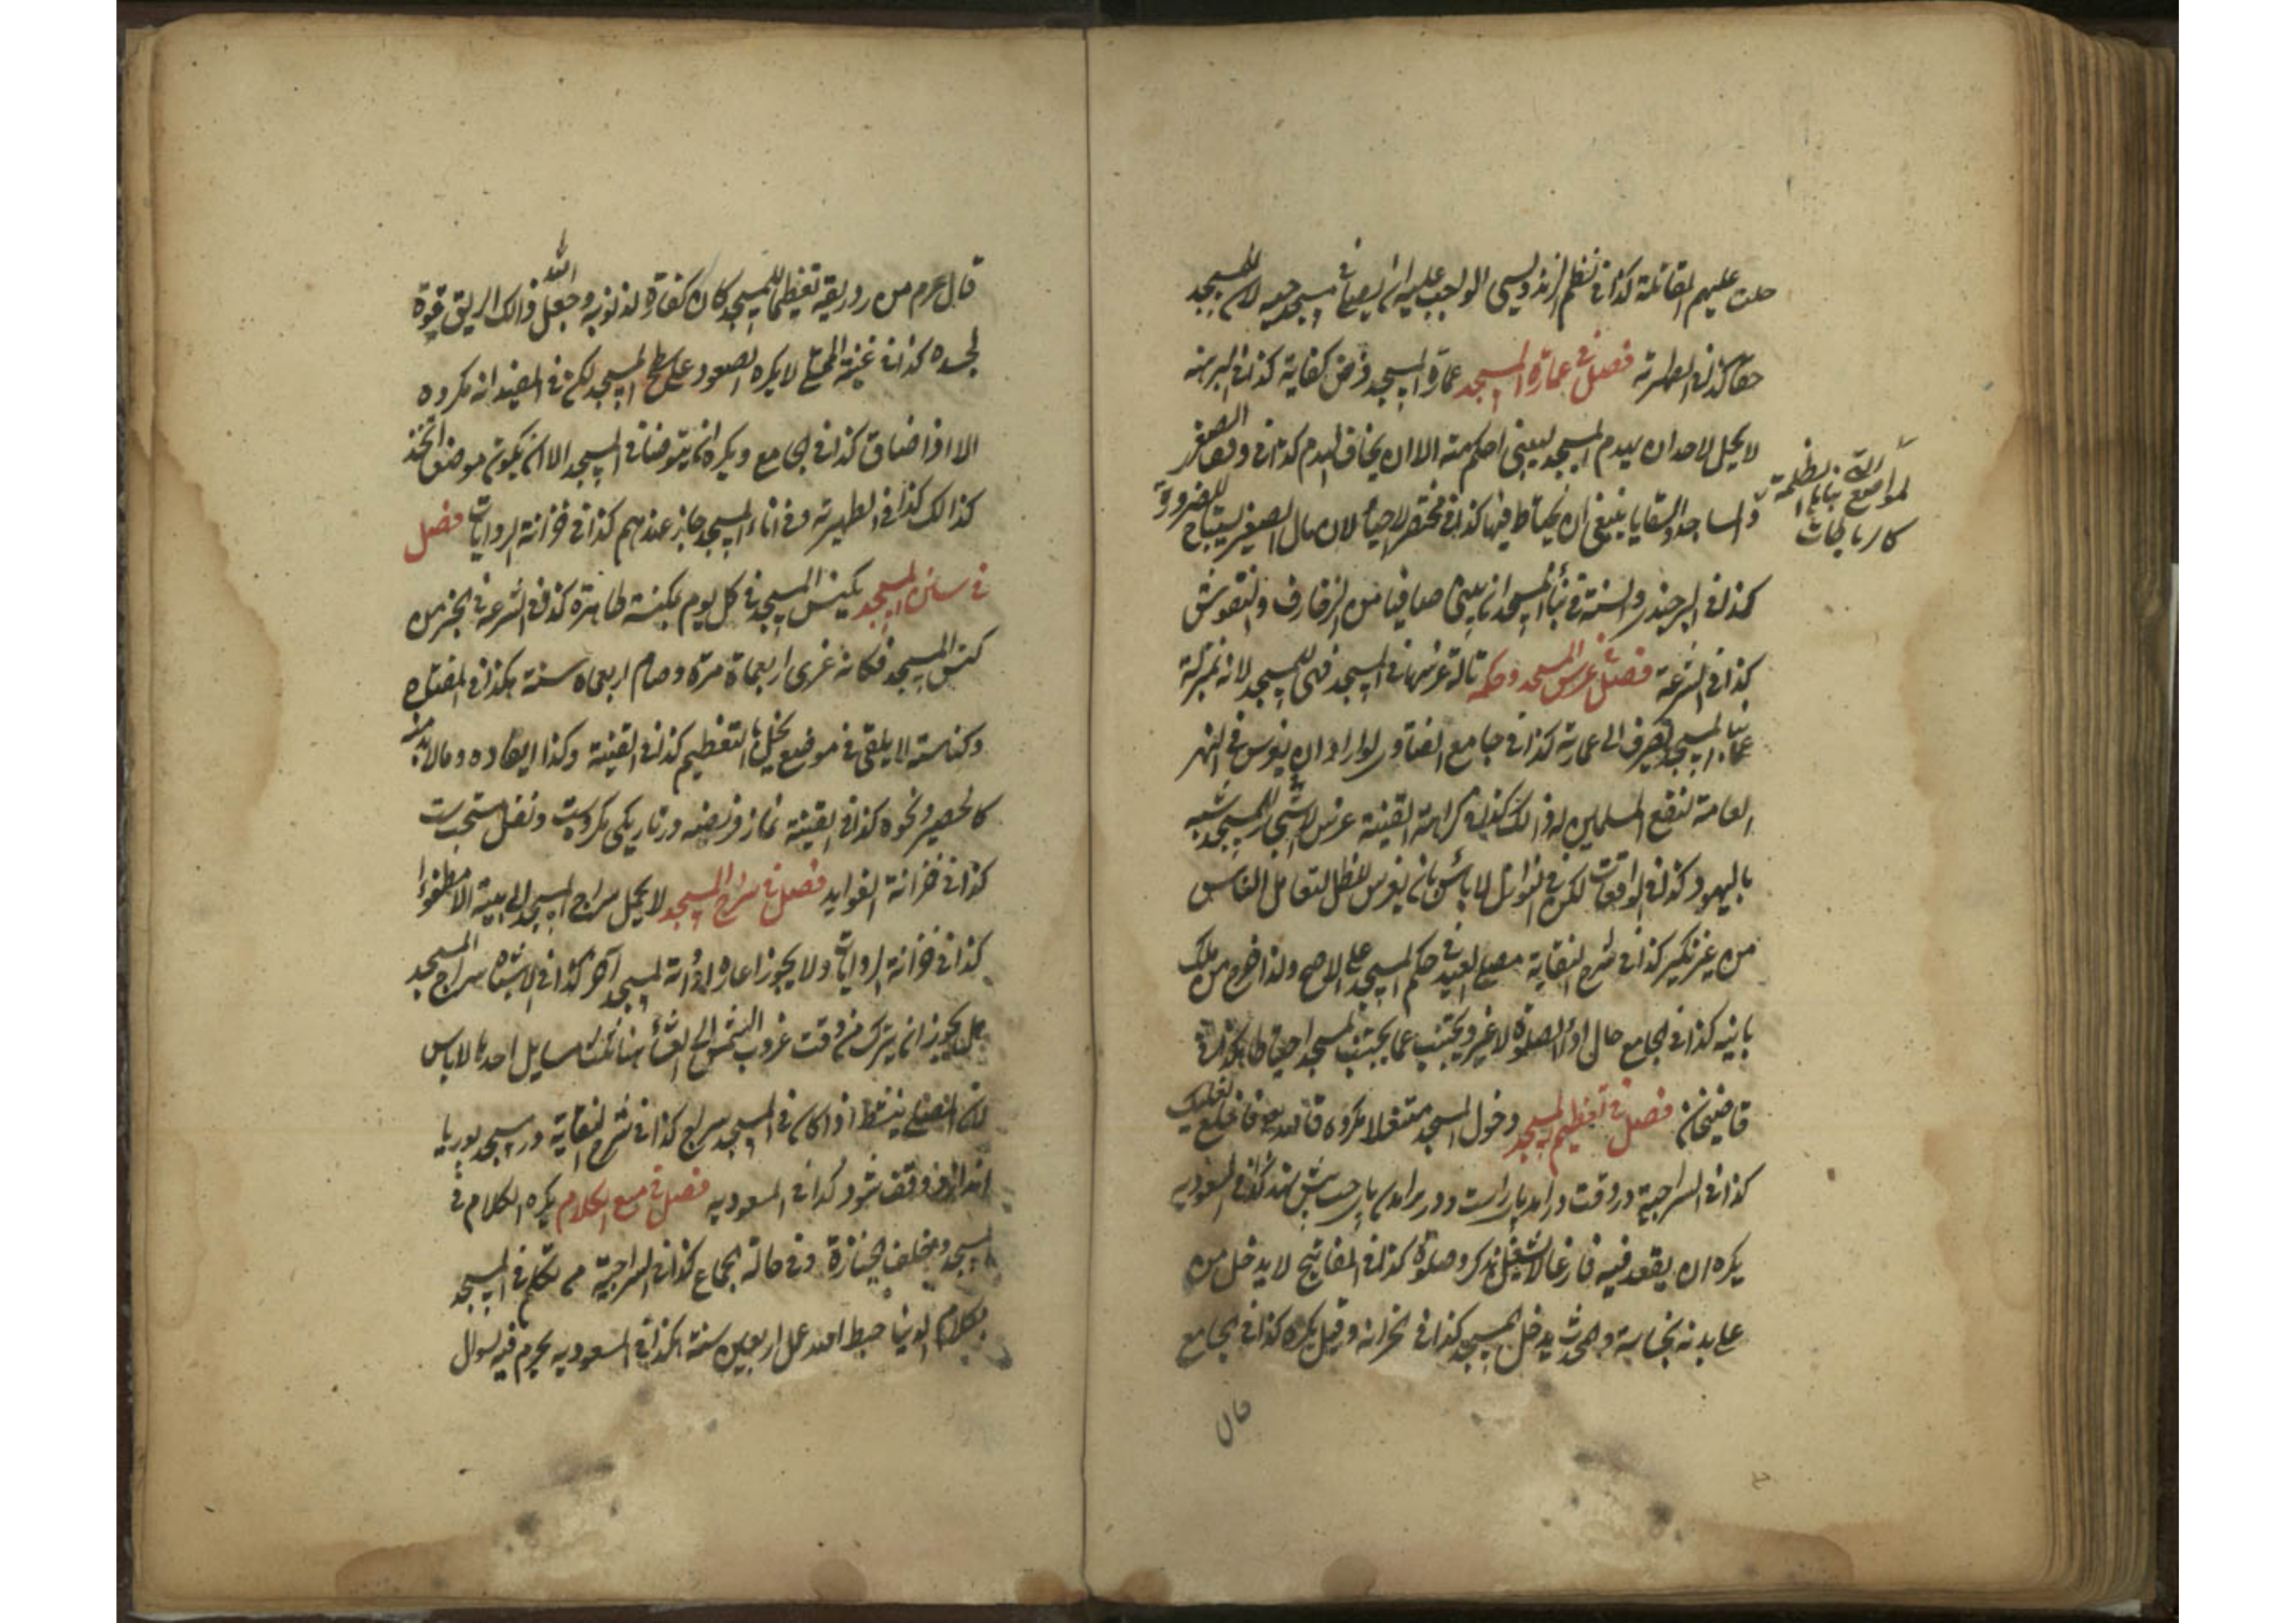 حلت عليهم المقاتلة كذا في نظم الزندويسى الواجب عليه ان يصلى في مسجد حيه لان للمسجد
حقا كذا في الظهيرية فصل في عمارة المسجد عمارة المسجد فرض كفاية كذا في البرهنة
لا يحل لاحد ان يهدم المسجد ليبنى احكم منه الا ان يخاف الهدم كذا في
والمساجد والسقايا ينبغى ان يحتاط فيها كذا في مختصر الاحيا لان مال الصغير يستباح للضرورة
كذا في البرجندى والسنة في بناء المسجد ان يبنى صافيا من الزخارف والنقوش
كذا في الشرعة فصل غرس المسجد وحكمه تالة غرسها في المسجد فهى للمسجد لانه بمنزلة
المسجد يصرف الى عمارته كذا في جامع الفتاوى لو اراد ان يغرس في النهر
العامة لنفع المسلمين له ذالك كذا في كراهة القنية غرس الاشجار للمسجد يشبه
باليهود كذا في الواقعات لكن في النوازل لا بأس بان يغرس للظل لتعامل الناس
من غير نكير كذا في شرح النقاية مصلى العيد في حكم المسجد على الاصح ولذا خرج من ملك
بانيه كذا في الجامع حال اداء الصلوة لا غير ويجتنب عما يجتنب المسجد احتياطا هكذا في
قاضيخان فصل في تعظيم المسجد دخول المسجد متنعلا مكروه قال الله تعالى فاخلع نعليك
كذا في السراجية در وقت درامد پاى راست ودر برامدن پاى چپ پيش نهد كذا في المسعودية
يكره ان يقعد فيه فارغا لا يشتغل بذكر وصلوة كذا في المفاتيح لا يدخل من
على بدنه نجاسة والمحدث يدخل المسجد كذا في الخزانة وقيل يكره كذا في الجامع
قال
كاربا طات
قال عم من رد ريقه تعظيما للمسجد كان كفارة لذنوبه وجعل الله ذالك الريق قوة
لجسده كذا في غنية المتملى لا يكره الصعود على سطح المسجد لكن في المفيد انه مكروه
الا اذا ضاق كذا في الجامع ويكره ان يتوضأ في المسجد الا ان يكون موضع اتخذ
كذالك كذا في الظهيرية وفى اناء المسجد جايز عندهم كذا في خزانة الروايات فصل
في المسجد يكنس المسجد في كل يوم بمكنسة طاهرة كذا في الشرعة في الخبر من
كنس المسجد فكانه غزى اربعماة مرة وصام اربعماة سنة هكذا في المفتاح
وكناسته لا يلقى في موضع يخل بالتعظيم كذا في القنية وكذا وما لا بد منه
كالحصير ونحوه كذا في القنية نماز فريضه در تاريكى مكروهست ونفل مستحبست
كذا في خزانة الفوايد فصل في سراج المسجد لا يحمل سراج المسجد الى بيته الا مطفوا
كذا في خزانة الروايات ولا يجوز اعارة ادواته لمسجد آخر كذا في الاشباه سراج المسجد
هل يجوز ان يترك من وقت غروب الشمس الى العشاء هنا ثلث مسايل احدها لا باس
لان المصلى ينشط اذا كان في المسجد سراج كذا في شرح النقاية در مسجد بوريا
اندازد وقف شود كذا في المسعوديه فصل في منع الكلام يكره الكلام في
المسجد وخلف الجنازة وفى حالة الجماع كذا في السراجية من تكلم في المسجد
بكلام الدنيا حبط الله عمل اربعين سنة هكذا في المسعوديه يحرم فيه السوال